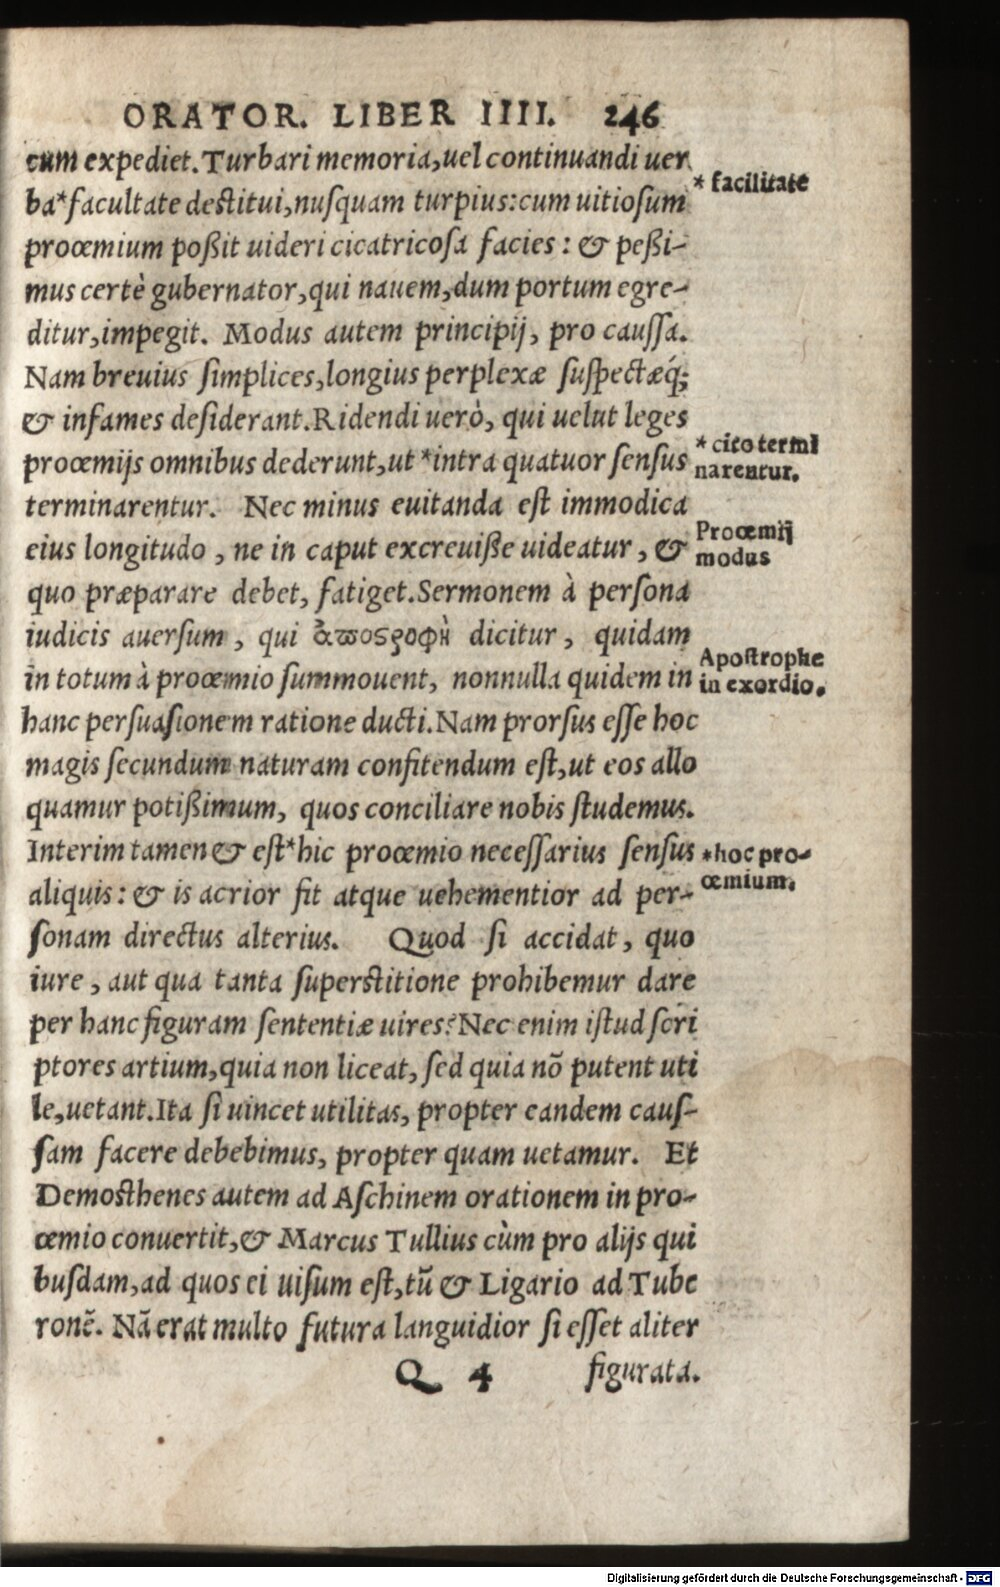 ORATOR. LIBER IIII. 246
cum expediet. Turbari memoria, uel continuandi uer
ba*facultate destitui, nusquam turpius: cum uitiosum
* facilitate
prooemium poßit uideri cicatricosa facies: & peßi-
mus certè gubernator, qui nauem, dum portum egre-
ditur, impegit. Modus autem principij, pro caussa.
Nam breuius simplices, longius perplexæ suspectæq́;
& infames desiderant. Ridendi uerò, qui uelut leges
prooemijs omnibus dederunt, ut *intra quatuor sensus
* cito termi
narentur.
terminarentur. Nec minus euitanda est immodica
eius longitudo, ne in caput excreuiße uideatur, &
Prooemij
modus
quo præparare debet, fatiget. Sermonem à persona
iudicis auersum, qui ἀποστροφὴ dicitur, quidam
in totum à prooemio summouent, nonnulla quidem in
Apostrophe
in exordio.
hanc persuasionem ratione ducti. Nam prorsus esse hoc
magis secundum naturam confitendum est, ut eos allo
quamur potißimum, quos conciliare nobis studemus.
Interim tamen & est*hic prooemio necessarius sensus
*hoc pro-
oemium.
aliquis: & is acrior fit atque uehementior ad per-
sonam directus alterius. Quod si accidat, quo
iure, aut qua tanta superstitione prohibemur dare
per hanc figuram sententiæ uires? Nec enim istud scri
ptores artium, quia non liceat, sed quia nõ putent uti
le, uetant. Ita si uincet utilitas, propter eandem caus-
sam facere debebimus, propter quam uetamur. Et
Demosthenes autem ad Aschinem orationem in pro-
oemio conuertit, & Marcus Tullius cùm pro alijs qui
busdam, ad quos ei uisum est, tũ & Ligario ad Tube
ronẽ. Nã erat multo futura languidior si esset aliter
Q 4 figurata.
Digitalisierung gefördert durch die Deutsche Forschungsgemeinschaft - DFG